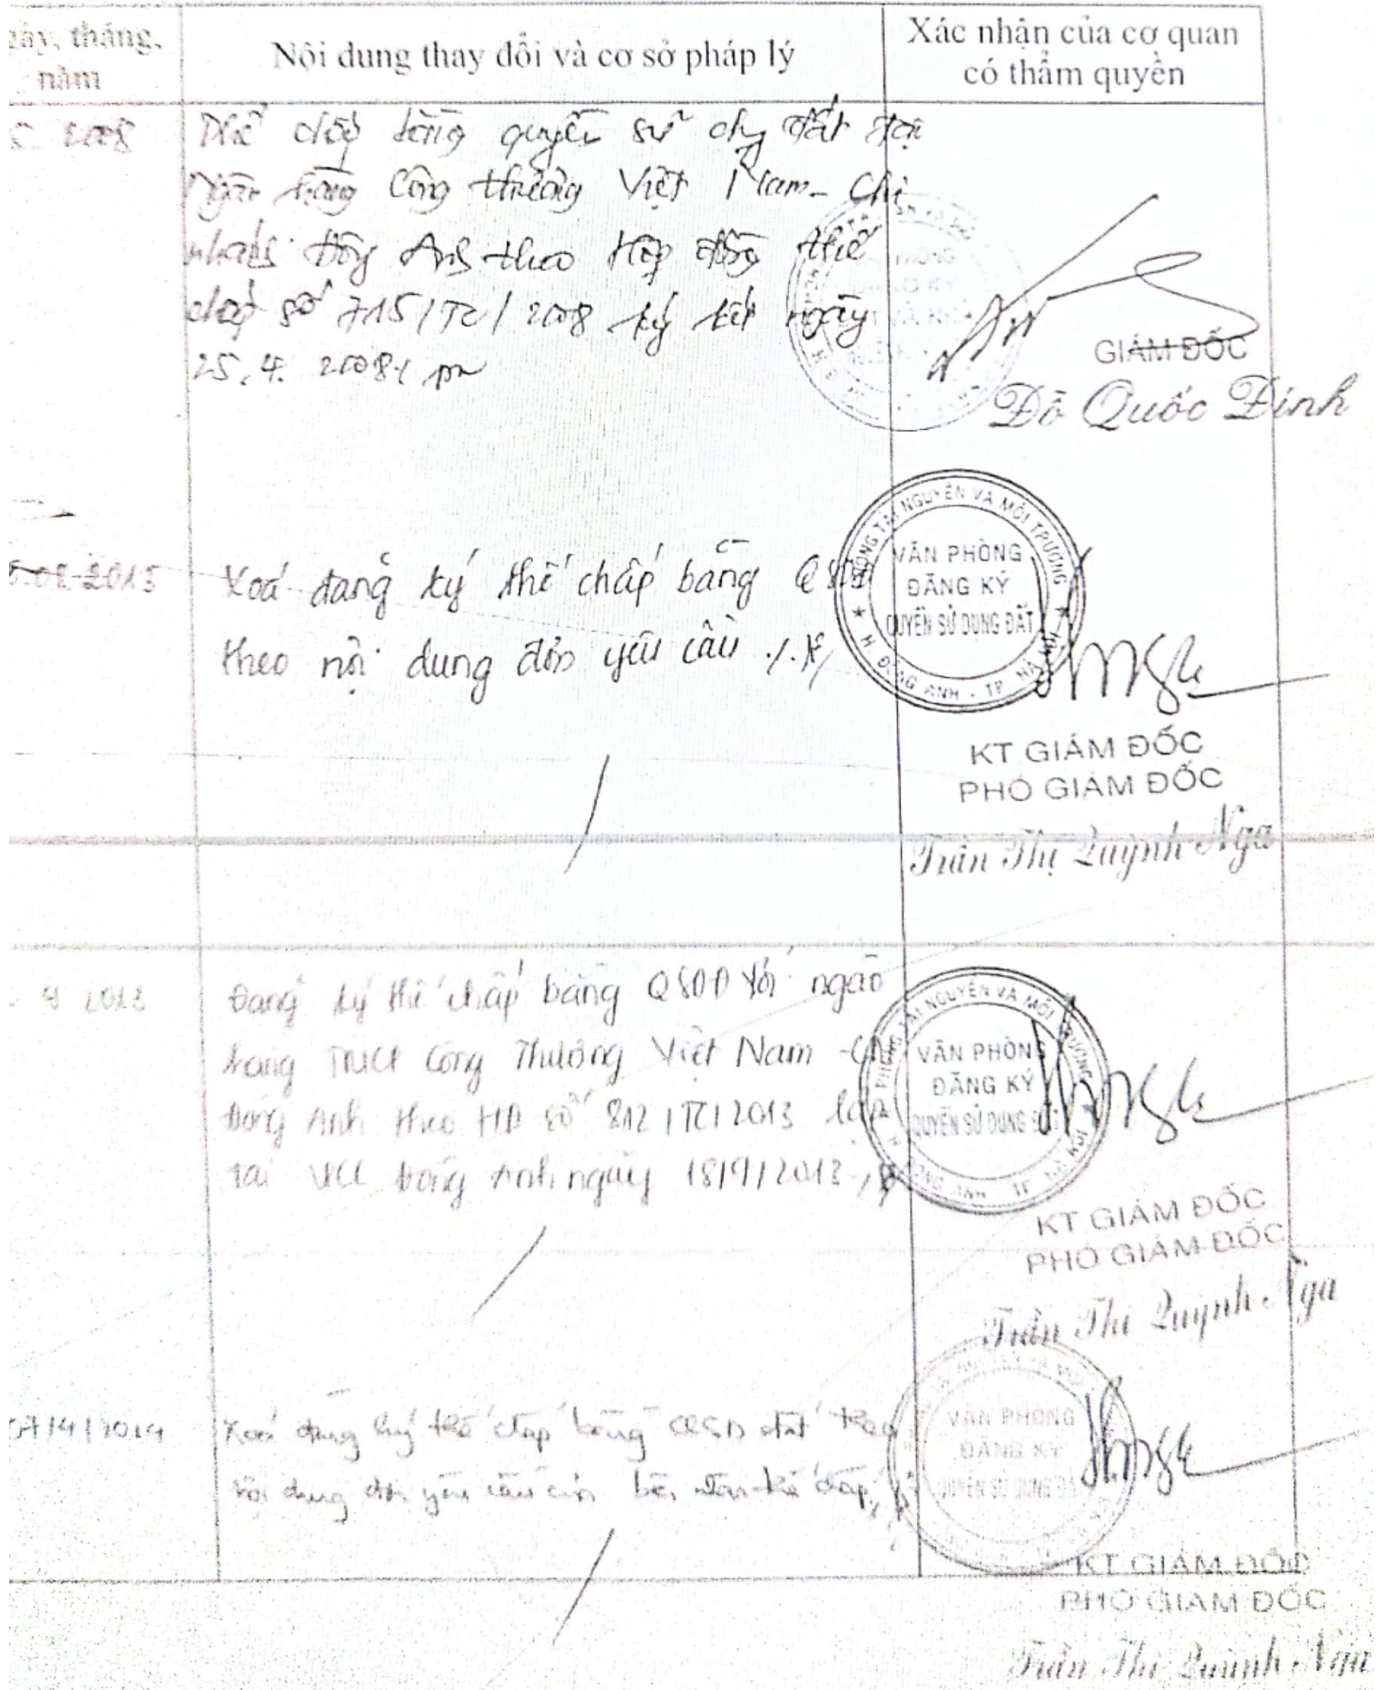 tháng,
năm
Nội dung thay đổi và cơ sở pháp lý
Xác nhận của cơ quan
có thẩm quyền
2008
Thế chấp bằng quyền sử dụng đất tại
Ngân hàng Công thương Việt Nam - Chi
nhánh Đông Anh theo Hợp đồng thế
chấp số 715/TC/2008 ký kết ngày
25.4.2008
GIÁM ĐỐC
Đỗ Quốc Đính
08-2013
Xoá đăng ký thế chấp bằng
theo nội dung đơn yêu cầu
PHÒNG TÀI NGUYÊN VÀ MÔI TRƯỜNG
VĂN PHÒNG
ĐĂNG KÝ
QUYỀN SỬ DỤNG ĐẤT
H. ĐÔNG ANH - TP. HÀ NỘI
KT GIÁM ĐỐC
PHÓ GIÁM ĐỐC
Trần Thị Quỳnh Nga
9 2013
Đăng ký thế chấp bằng QSDĐ với ngân
hàng TMCP Công Thương Việt Nam - CN
Đông Anh theo HĐ số 812/TC/2013 lập
tại Đông Anh ngày 18/9/2013
PHÒNG TÀI NGUYÊN VÀ MÔI TRƯỜNG
VĂN PHÒNG
ĐĂNG KÝ
QUYỀN SỬ DỤNG ĐẤT
KT GIÁM ĐỐC
PHÓ GIÁM ĐỐC
Trần Thị Quỳnh Nga
/4/2014
Xoá đăng ký thế chấp bằng QSD đất theo
nội dung đơn yêu cầu của bên nhận thế chấp
VĂN PHÒNG
ĐĂNG KÝ
QUYỀN SỬ DỤNG ĐẤT
KT GIÁM ĐỐC
PHÓ GIÁM ĐỐC
Trần Thị Quỳnh Nga